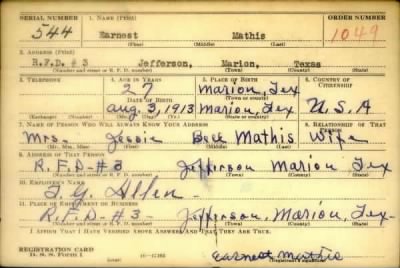 SERIAL NUMBER 1. NAME (Print) ORDER NUMBER
544 Earnest Mathis 1049
(First) (Middle) (Last)
2. ADDRESS (Print)
R.F.D. # 3 Jefferson, Marion, Texas
(Number and street or R. F. D. number) (Town) (County) (State)
3. TELEPHONE 4. AGE IN YEARS 5. PLACE OF BIRTH 6. COUNTRY OF CITIZENSHIP
27 Marion, Tex
DATE OF BIRTH (Town or county)
Aug, 3, 1913 Marion, Tex U.S.A
(Exchange) (Number) (Mo.) (Day) (Yr.) (State or country)
7. NAME OF PERSON WHO WILL ALWAYS KNOW YOUR ADDRESS 8. RELATIONSHIP OF THAT PERSON
Mrs. Jessie Bell Mathis Wife
(Mr., Mrs., Miss) (First) (Middle) (Last)
9. ADDRESS OF THAT PERSON
R.F.D-#3 Jefferson Marion Tex
(Number and street or R. F. D. number) (Town) (County) (State)
10. EMPLOYER'S NAME
Allen
11. PLACE OF EMPLOYMENT OR BUSINESS
R.F.D-#3- Jefferson, Marion, Tex-
(Number and street or R. F. D. number) (Town) (County) (State)
I AFFIRM THAT I HAVE VERIFIED ABOVE ANSWERS AND THAT THEY ARE TRUE.
REGISTRATION CARD
D. S. S. FORM 1 Earnest Mathis
(Registrant's signature)